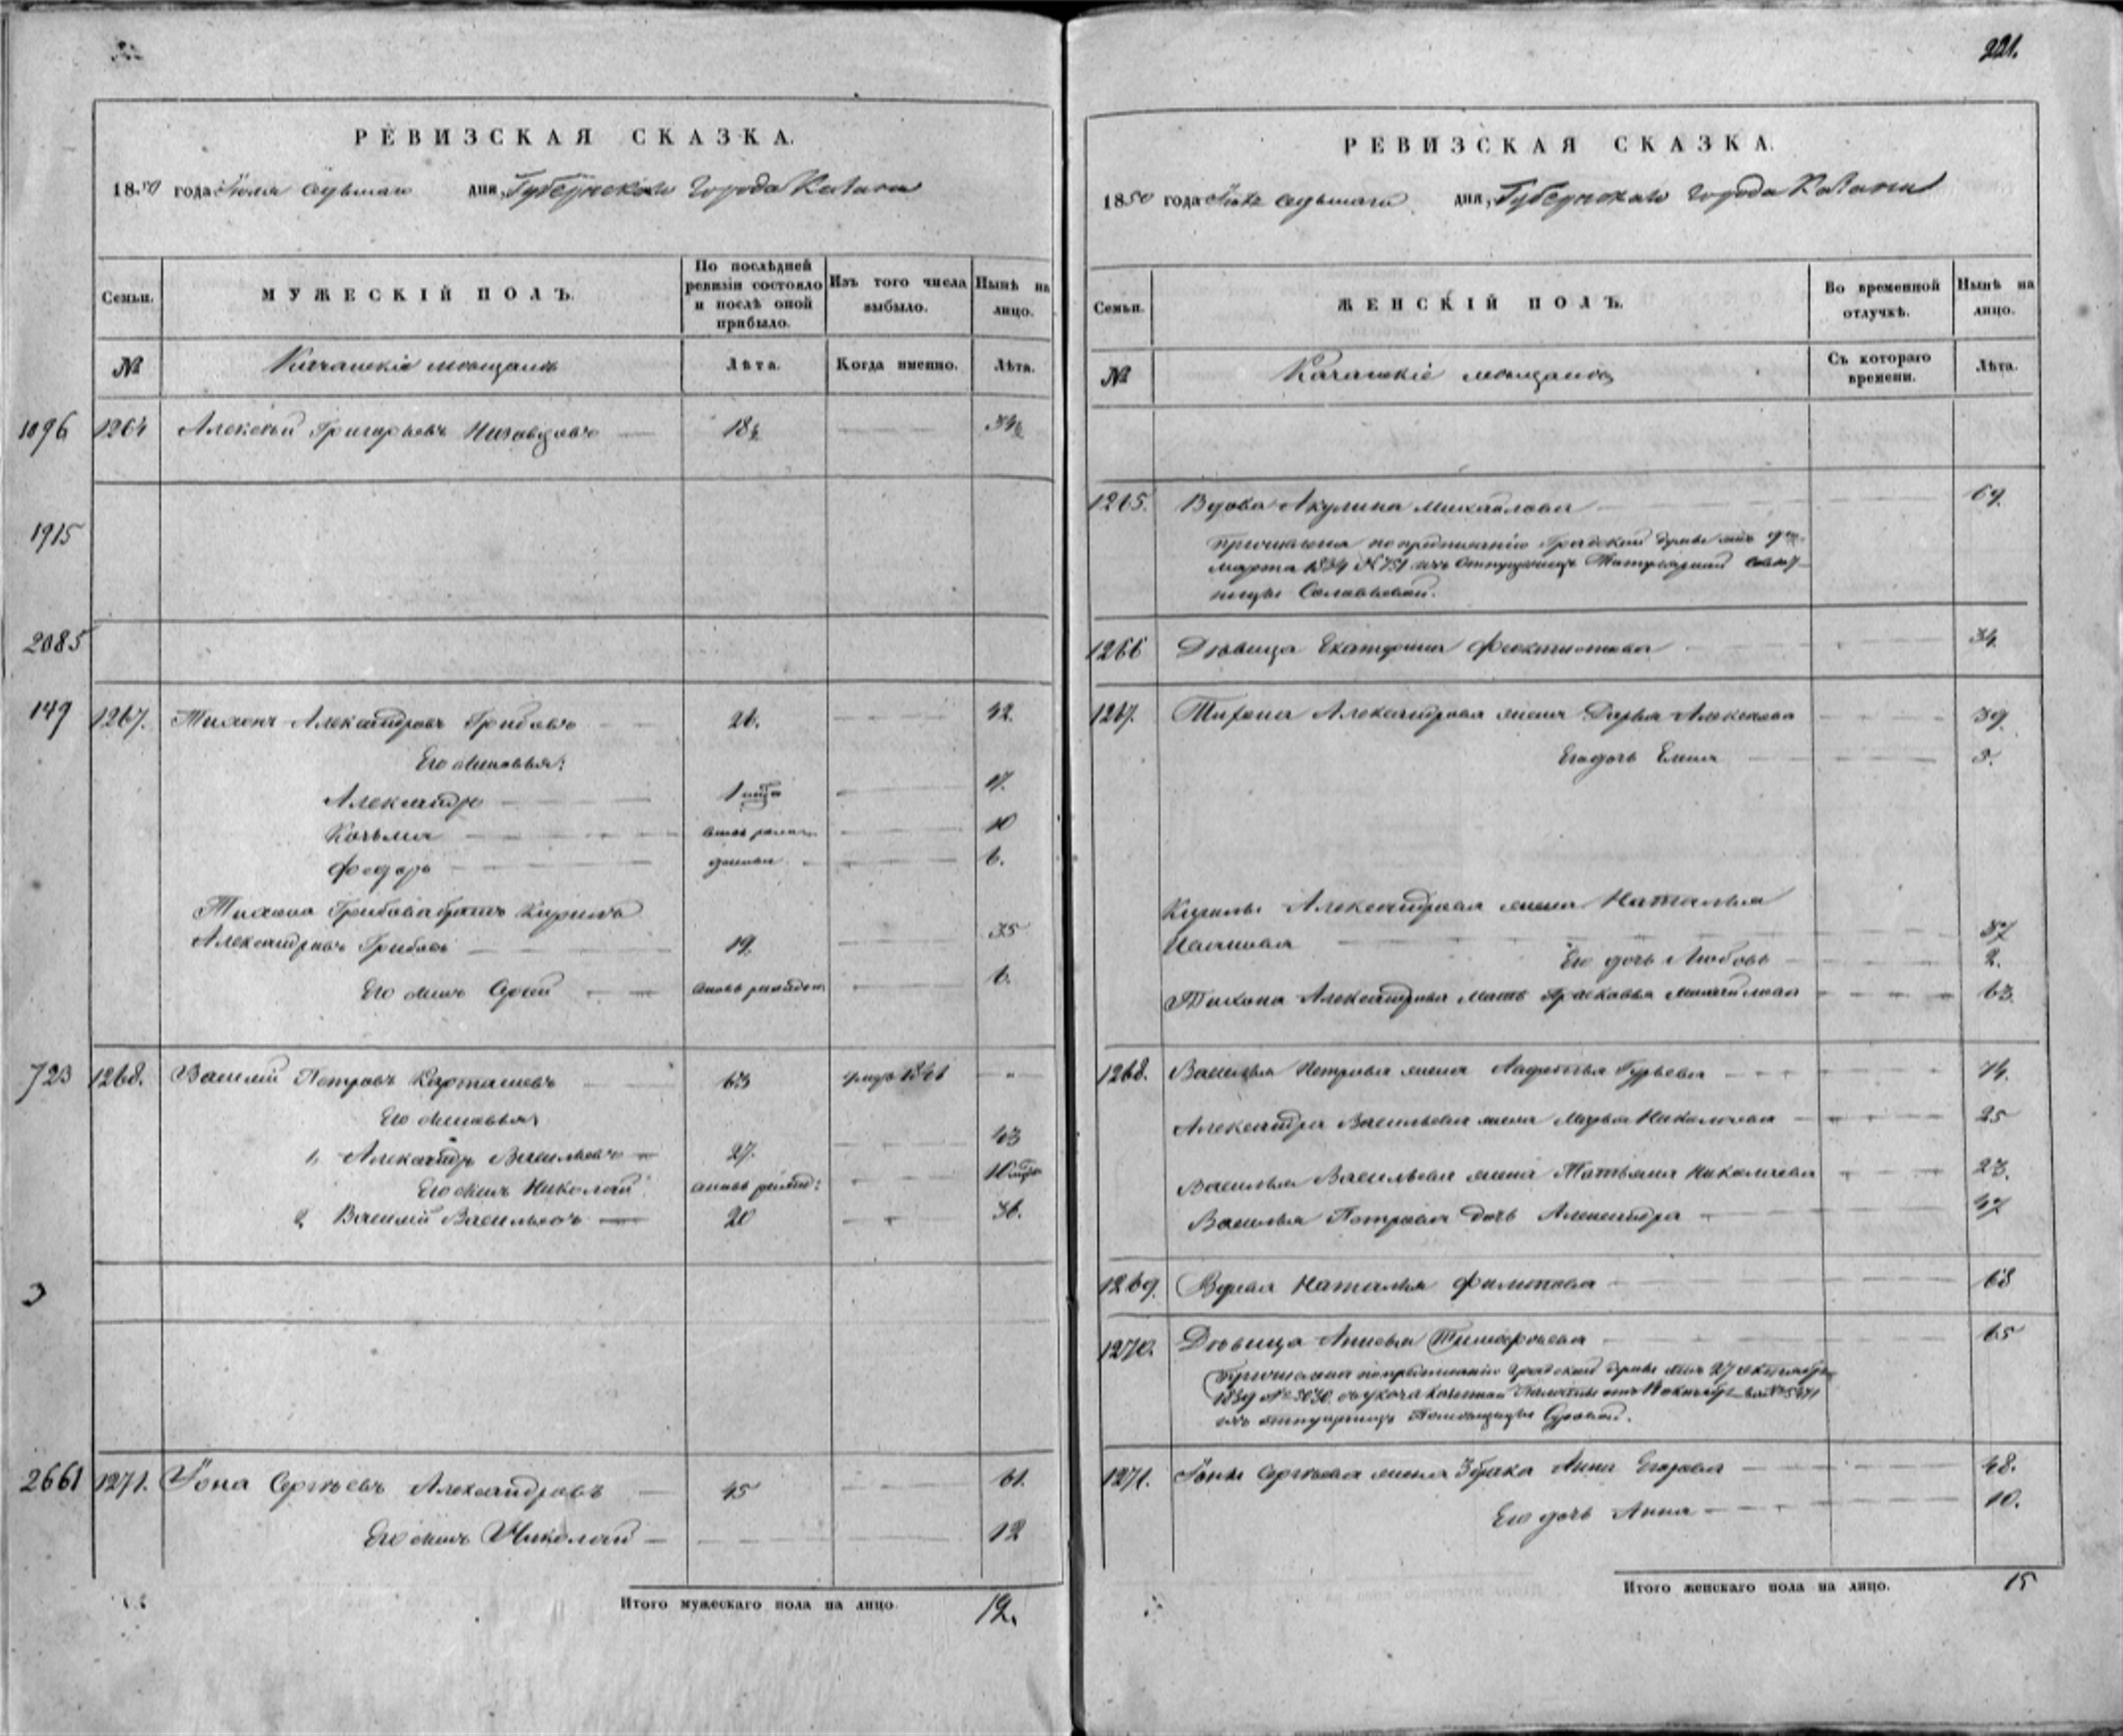 РЕВИЗСКАЯ СКАЗКА.
1850 года Іюля седьмаго дня, Губернскаго города Казани
Семьи.
МУЖЕСКІЙ ПОЛЪ.
По послѣдней ревизіи состояло и послѣ оной прибыло.
Изъ того числа выбыло.
Нынѣ на лицо.
№
Казанскіе мѣщане
Лѣта.
Когда именно.
Лѣта.
1096 1264 Алексѣй Григорьевъ 18½ 34½
1915
2085
149 1267. Тихонъ Александровъ Грибовъ 26. 42.
Его сыновья:
Александръ 1 17.
Козьма 10
Федоръ 6.
Тихона Грибова братъ Кирилъ
Александровъ Грибовъ 19. 35
Его сынъ вновь рожден 6.
723 1268. Василій Петровъ Карташевъ 63 умеръ 1846 "
Его сыновья:
1, Александръ Васильевъ 27. 43
Его сынъ Николай вновь рожд:
2, Василій Васильевъ 20 36.
3
2661 1271. Іона Сергѣевъ Александровъ 45 61.
Его сынъ Николай 12
Итого мужескаго пола на лицо. 12.
221.
РЕВИЗСКАЯ СКАЗКА.
1850 года Іюля седьмаго дня, Губернскаго города Казани
Семьи.
ЖЕНСКІЙ ПОЛЪ.
Во временной отлучкѣ.
Нынѣ на лицо.
№
Казанскіе мѣщане
Съ котораго времени.
Лѣта.
1265. Вдова Акулина Михайлова 69.
Причислена по предписанію Градской думы отъ 9го
марта 1834 № 751 изъ отпущенницъ Титулярной Совѣт-
ницы Соловьевой.
1266 Дѣвица Екатерина Феоктистова 34.
1267. Тихона Александрова жена Дарья Алексѣева 39.
Его дочь Елена 3.
Кирилы Александрова жена Наталья
37
Его дочь Любовь 2.
Тихона Александрова мать Прасковья Михайлова 63.
1268. Василья Петрова жена Гурьева 74.
Александра Васильева жена Марья Николаева 25
Василья Васильева жена Татьяна Николаева 23.
Василья Петрова дочь Александра 47
1269. Вдова Наталья Филипова 68
1270. Дѣвица Тимофѣева 65
Причислена по предписанію Градской думы отъ 27 октября
1839 № 3030. Казенной Палаты
изъ отпущенницъ Помѣщицы
1271. Іоны Сергѣева жена 3 брака Анна Егорова 48.
Его дочь Анна 10.
Итого женскаго пола на лицо. 15